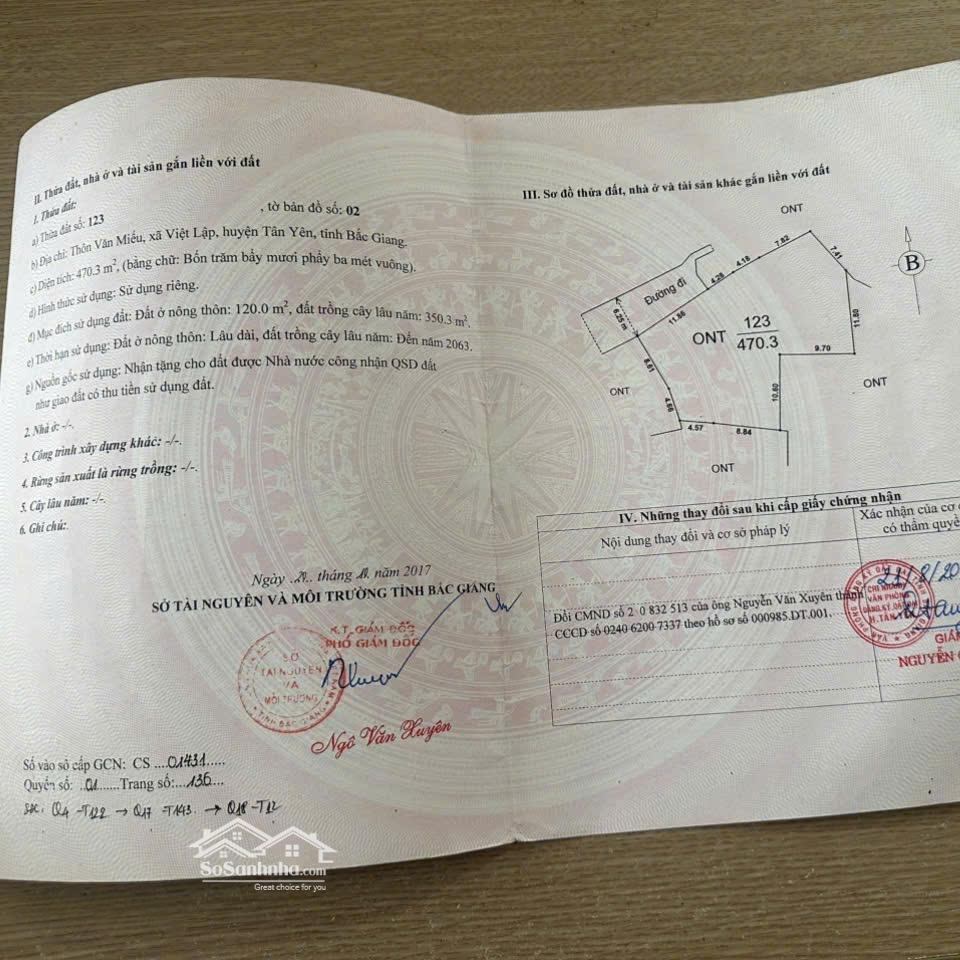 II. Thửa đất, nhà ở và tài sản gắn liền với đất
1. Thửa đất:
a) Thửa đất số: 123 , tờ bản đồ số: 02
b) Địa chỉ: Thôn Văn Miếu, xã Việt Lập, huyện Tân Yên, tỉnh Bắc Giang.
c) Diện tích: 470.3 m², (bằng chữ: Bốn trăm bẩy mươi phẩy ba mét vuông).
d) Hình thức sử dụng: Sử dụng riêng.
đ) Mục đích sử dụng đất: Đất ở nông thôn: 120.0 m², đất trồng cây lâu năm: 350.3 m².
e) Thời hạn sử dụng: Đất ở nông thôn: Lâu dài, đất trồng cây lâu năm: Đến năm 2063.
g) Nguồn gốc sử dụng: Nhận tặng cho đất được Nhà nước công nhận QSD đất
như giao đất có thu tiền sử dụng đất.
2. Nhà ở: -/-.
3. Công trình xây dựng khác: -/-.
4. Rừng sản xuất là rừng trồng: -/-.
5. Cây lâu năm: -/-.
6. Ghi chú:
Ngày tháng năm 2017
SỞ TÀI NGUYÊN VÀ MÔI TRƯỜNG TỈNH BẮC GIANG
K.T. GIÁM ĐỐC
PHÓ GIÁM ĐỐC
SỞ
TÀI NGUYÊN
VÀ
MÔI TRƯỜNG
TỈNH BẮC GIANG
Ngô Văn Xuyên
Số vào sổ cấp GCN: CS ....01431.....
Quyển số: .01......Trang số:....136....
Q4 -T122 → Q17 -T143. → Q18 -T12
SoSanhnha.com
Great choice for you
III. Sơ đồ thửa đất, nhà ở và tài sản khác gắn liền với đất
ONT
7.82
7.41
4.18
4.28
Đường đi
11.86
6.25 m
B
11.80
ONT
123
470.3
9.70
ONT
8.61
ONT
4.66
10.60
4.57
8.84
ONT
IV. Những thay đổi sau khi cấp giấy chứng nhận
Nội dung thay đổi và cơ sở pháp lý
Xác nhận của cơ
có thẩm quyề
Đổi CMND số 2 0 832 513 của ông Nguyễn Văn Xuyên thành
CCCD số 0240 6200 7337 theo hồ sơ số 000985.DT.001.
CHI NHÁNH
VĂN PHÒNG
ĐĂNG KÝ ĐẤT ĐAI
GIÁM
NGUYỄN